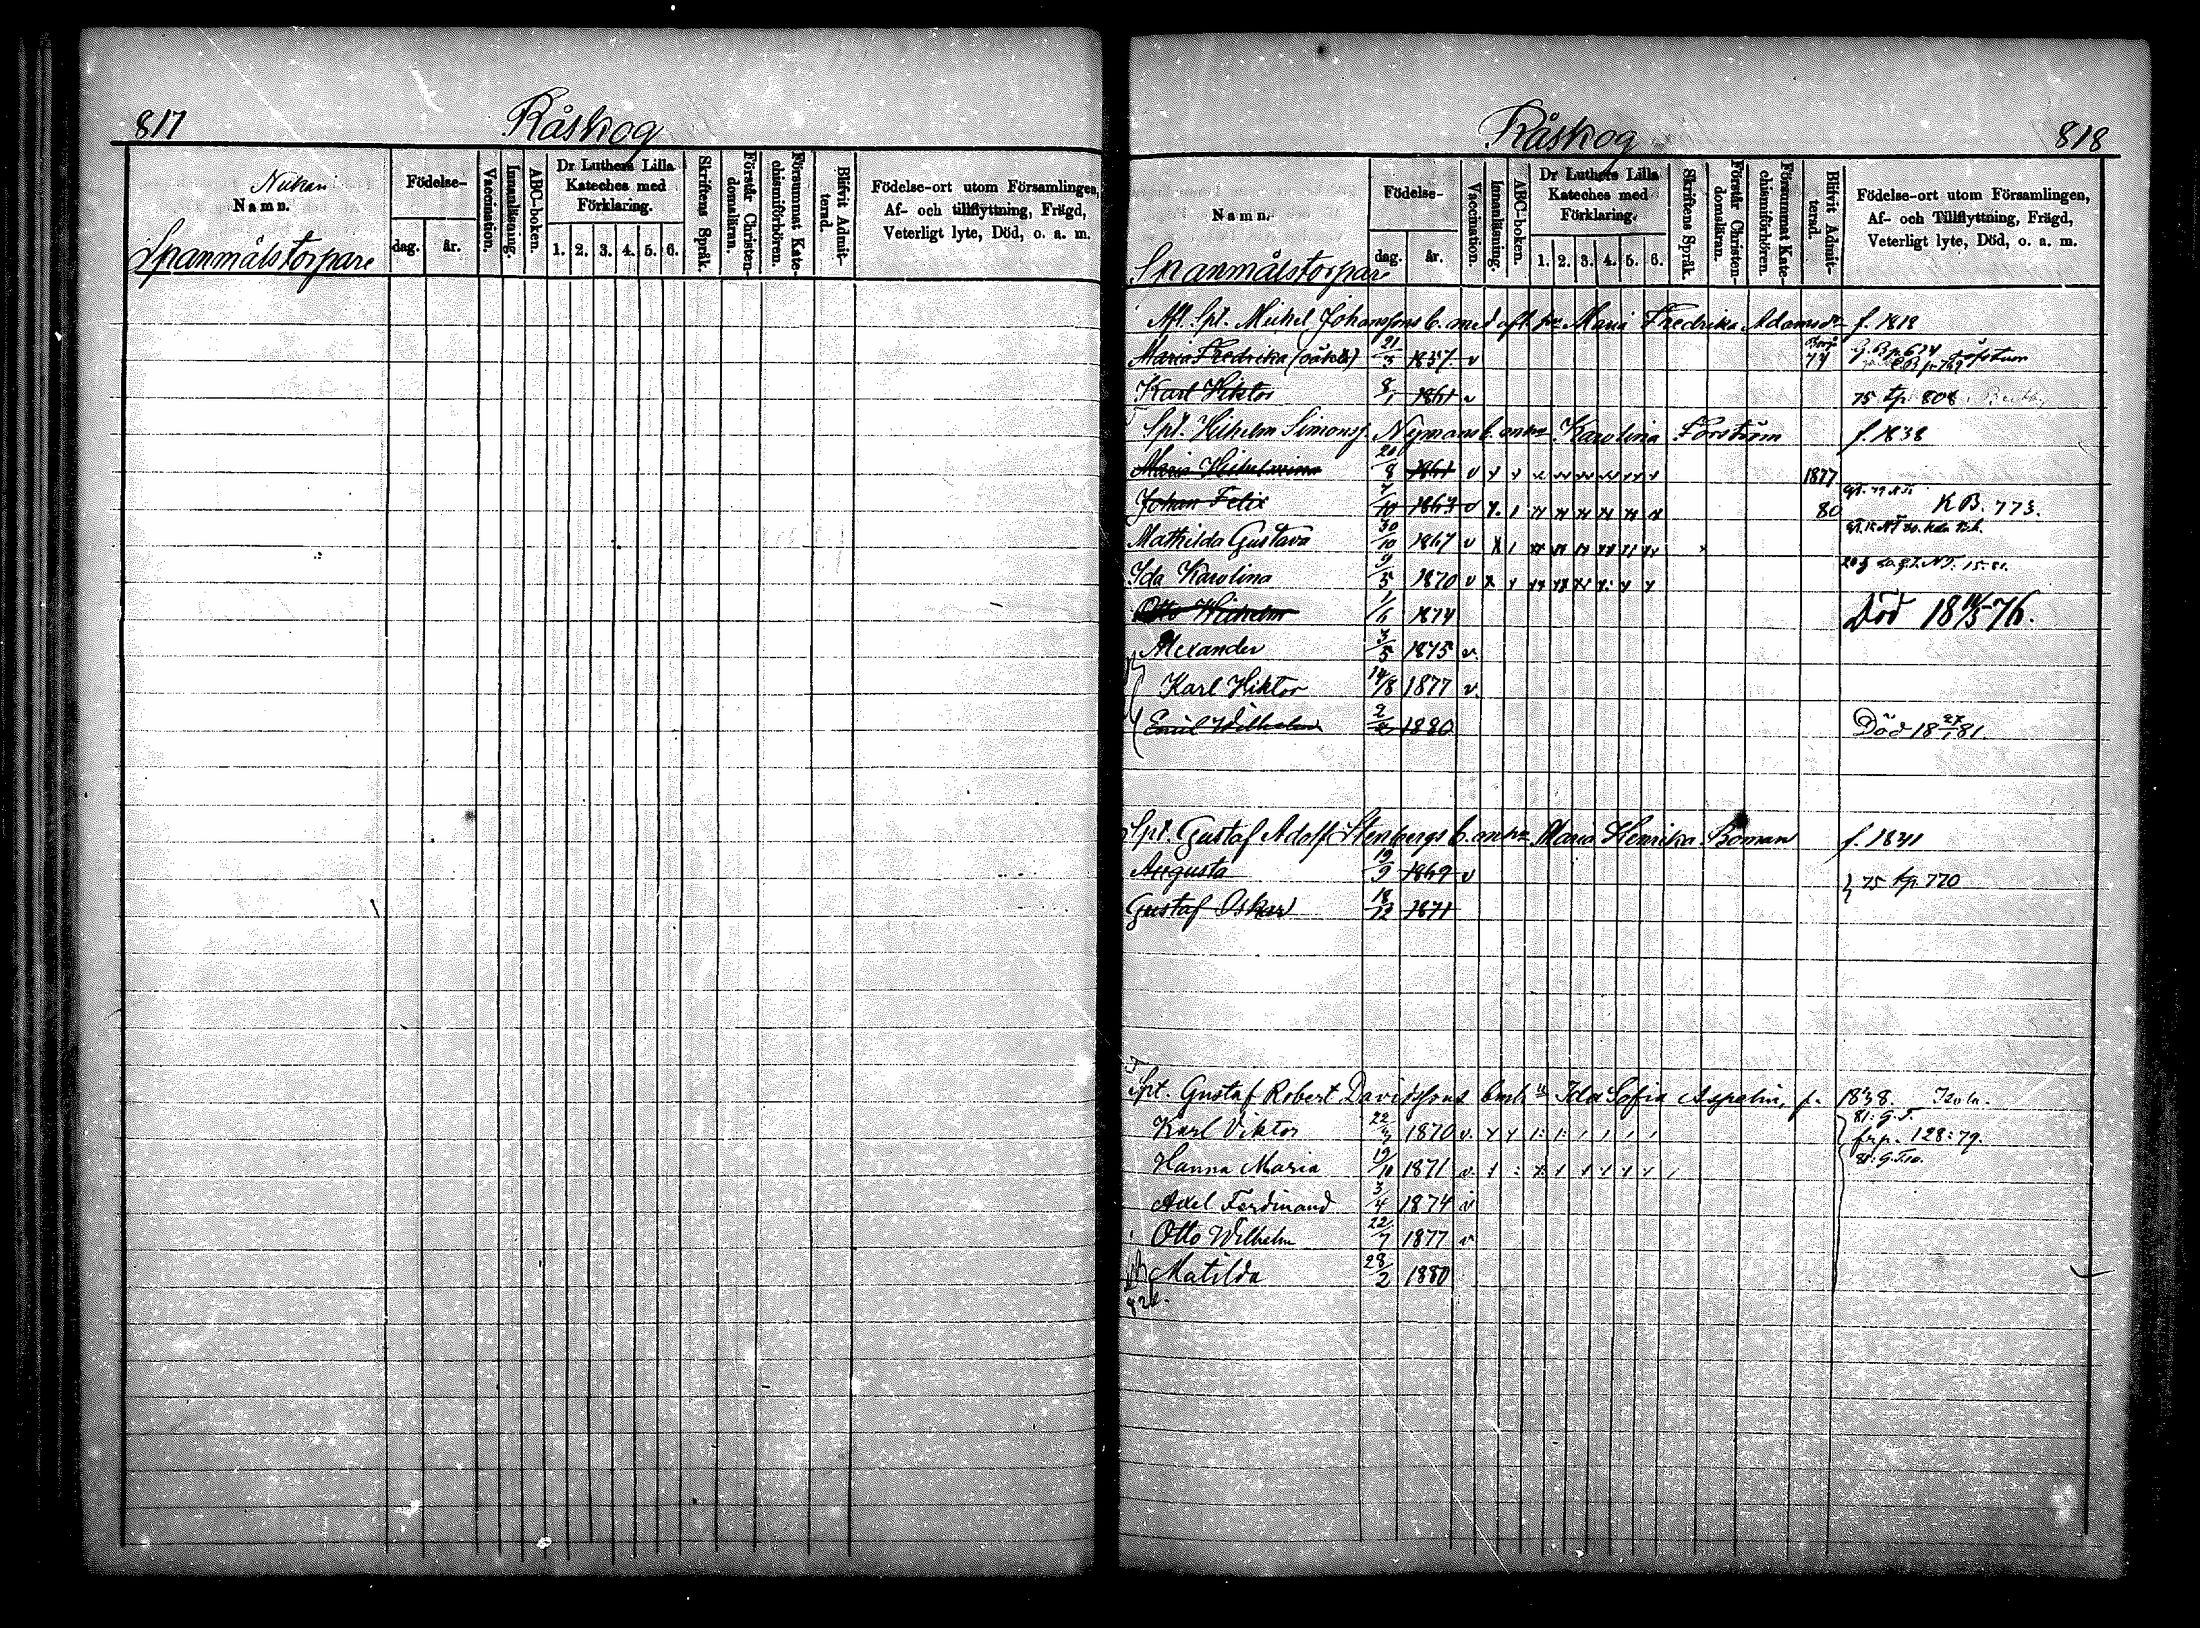 817
Råskog
Namn.
Födelse-
dag.
år.
Vaccination.
Innanläsning.
ABC-boken.
Dr Luthers Lilla
Kateches med
Förklaring.
1. 2. 3. 4. 5. 6.
Skriftens Språk.
Förstår Christen-
domsläran.
Försummat Kate-
chismiförhören.
Blifvit Admit-
terad.
Födelse-ort utom Församlingen,
Af- och tillflyttning, Frägd,
Veterligt lyte, Död, o. a. m.
Spanmålstorpare
Råskog
818
Namn.
Födelse-
dag.
år.
Vaccination.
Innanläsning.
ABC-boken.
Dr Luthers Lilla
Kateches med
Förklaring.
1. 2. 3. 4. 5. 6.
Skriftens Språk.
Förstår Christen-
domsläran.
Försummat Kate-
chismiförhören.
Blifvit Admit-
terad.
Födelse-ort utom Församlingen,
Af- och Tillflyttning, Frägd,
Veterligt lyte, Död, o. a. m.
Spanmålstorpare
Afl. Spt. Michel Johanssons b. med afl. Maria Fredrika Adamsdr f. 1818
Maria Fredrika (oäkta) 21/3 1857 v 74
Karl Viktor 8/1 1861 v 75 808
Spt. Vilhelm Simonss. Nymans b. Karolina Forström f. 1838
Maria Vilhelmina 20/8 1861 v 1877
Johan Felix 10 1864 v 80 K B. 773.
Mathilda Gustava 30/10 1867 v
Ida Karolina 9/5 1870 v
Otto Wilhelm 1/6 1874 Död 18 76.
Alexander 3/5 1875 v.
Karl Viktor 14/8 1877 v.
Emil Wilhelm 2 1880 Död 18 27/1 81.
Spt. Gustaf Adolf Stenbergs b. Maria Henrika Boman f. 1841
Augusta 19/9 1869 v
75 770
Gustaf Oskar 18/12 1871
Spt. Gustaf Robert Davidssons Ida Sofia Aspelin, f. 1838.
Karl Viktor 22 1870 v. 128:79.
Hanna Maria 19/10 1871 v.
Axel Ferdinand 3/4 1874 v
Otto Wilhelm 22/7 1877 v
Matilda 28/2 1880